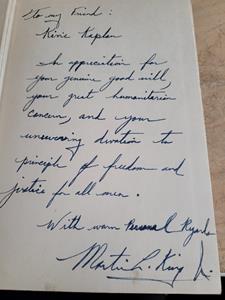 To my Friend:
Kivie Kaplan
In appreciation for
your genuine good will,
your great humanitarian
concern, and your
unswerving devotion to
principle of freedom and
justice for all men.
With warm Personal Regards
Martin L. King Jr.